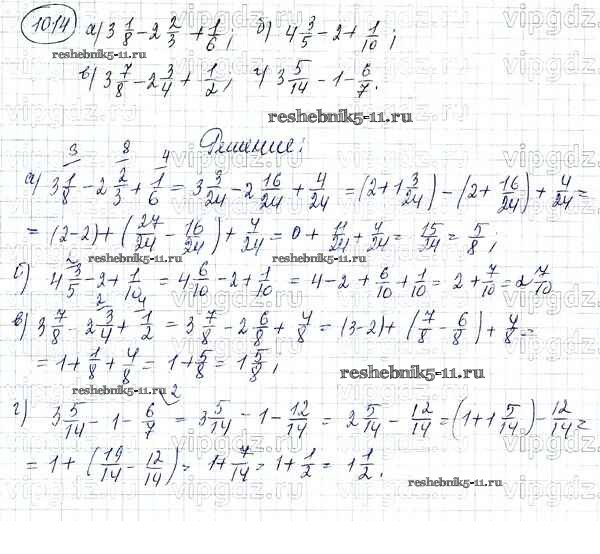 1014 а) 3 1/8 - 2 2/3 + 1/6; б) 4 3/5 - 2 + 1/10;
reshebnik5-11.ru
в) 3 7/8 - 2 3/4 + 1/2; г) 3 5/14 - 1 - 6/7.
reshebnik5-11.ru
Решение:
3 8 4
а) 3 1/8 - 2 2/3 + 1/6 = 3 3/24 - 2 16/24 + 4/24 = (2 + 1 3/24) - (2 + 16/24) + 4/24 =
= (2-2) + (27/24 - 16/24) + 4/24 = 0 + 11/24 + 4/24 = 15/24 = 5/8;
reshebnik5-11.ru
2
б) 4 3/5 - 2 + 1/10 = 4 6/10 - 2 + 1/10 = 4 - 2 + 6/10 + 1/10 = 2 + 7/10 = 2 7/10
2 4
в) 3 7/8 - 2 3/4 + 1/2 = 3 7/8 - 2 6/8 + 4/8 = (3-2) + (7/8 - 6/8) + 4/8 =
= 1 + 1/8 + 4/8 = 1 + 5/8 = 1 5/8;
reshebnik5-11.ru
reshebnik5-11.ru
2
г) 3 5/14 - 1 - 6/7 = 3 5/14 - 1 - 12/14 = 2 5/14 - 12/14 = (1 + 1 5/14) - 12/14 =
= 1 + (19/14 - 12/14) = 1 + 7/14 = 1 + 1/2 = 1 1/2.
reshebnik5-11.ru